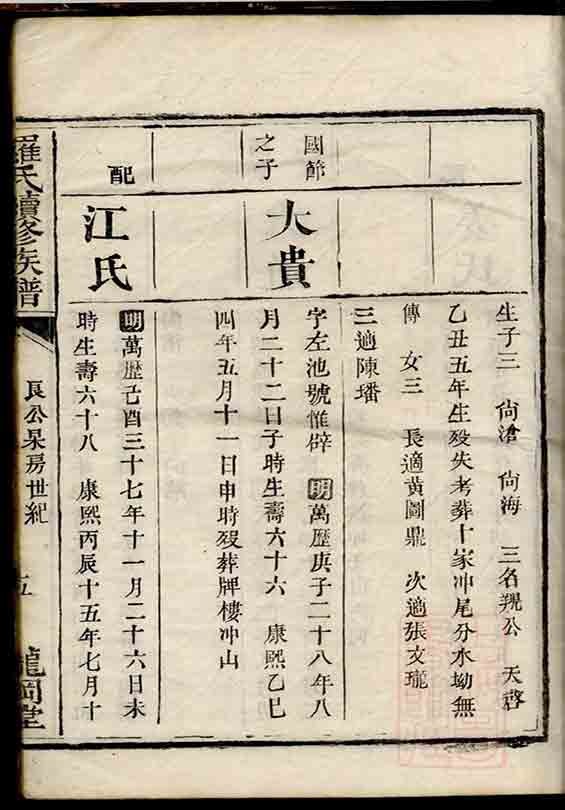 生子三 尙滄 尙海 三名覞公 天啓
乙丑五年生歿失考葬十家冲尾分水坳無
傳 女三 長適黄圖鼎 次適張文瓏
三適陳璠
國節
之子
大貴
字左池號惟辟 明萬歷庚子二十八年八
月二十二日子時生壽六十六 康熙乙巳
四年五月十一日申時歿葬牌樓冲山
配
江氏
明萬歷己酉三十七年十一月二十六日未
時生壽六十八 康熙丙辰十五年七月十
羅氏續修族譜
良公杲房世紀
五
龍岡堂